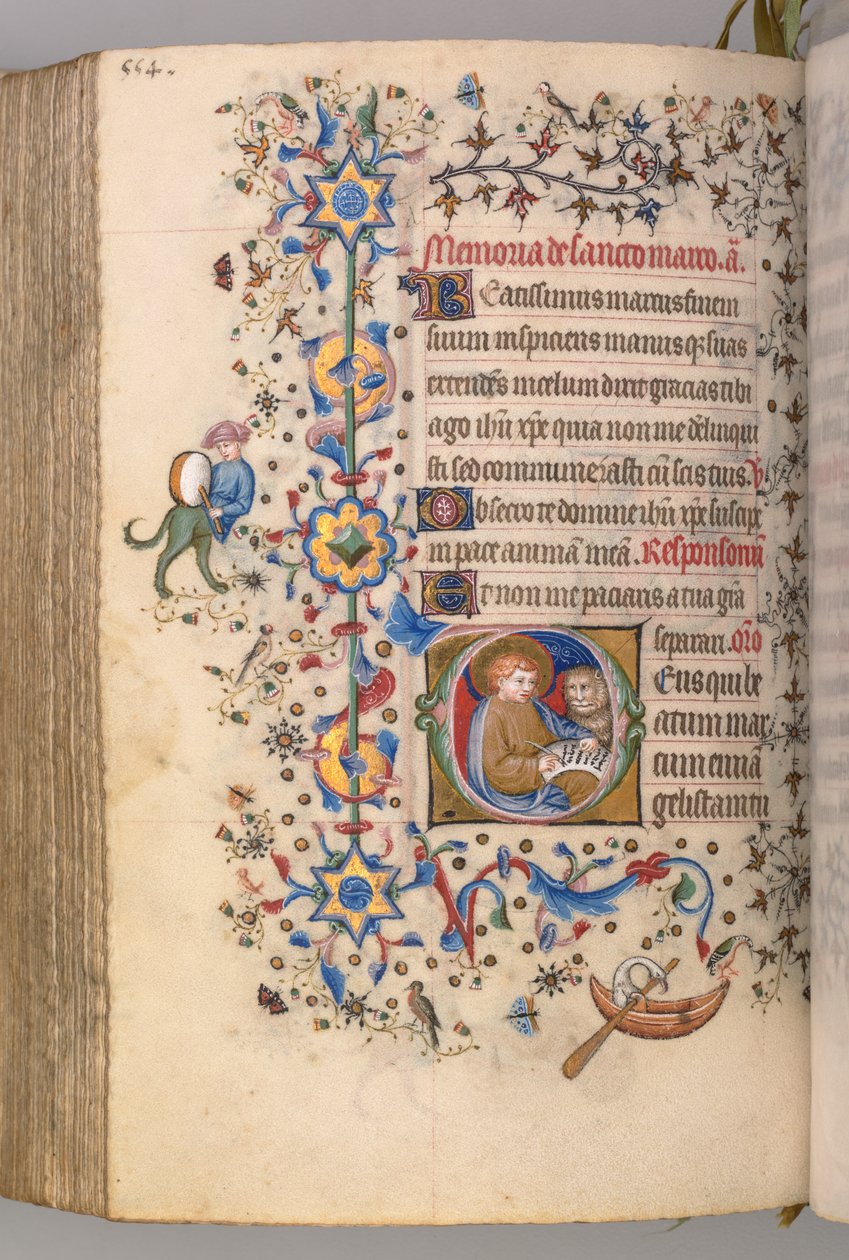 554.
Memoria de sancto marco. a͞.
Beatissimus marcus finem
suum inspiciens manus q; suas
extendēs in celum dixit gracias tibi
ago ihū xp̄e quia non me dēlinqui
sti sed commune rasti cū scīs tuis. V
Obsecro te domine ihū xp̄e suscipe
in pace animā meā. Responsoriū
Et non me paciaris a tua grā
separari. or̄o
Eus qui be
atum mar
cum euuā
gelistam tu